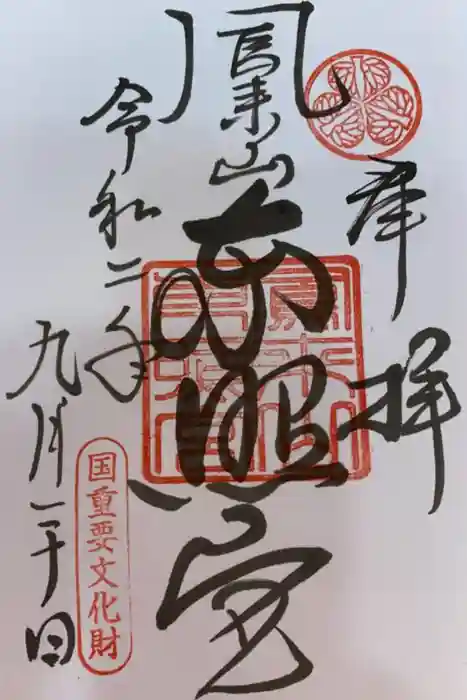 奉拝
鳳来山
東照宮
令和二年
九月一十日
国重要文化財